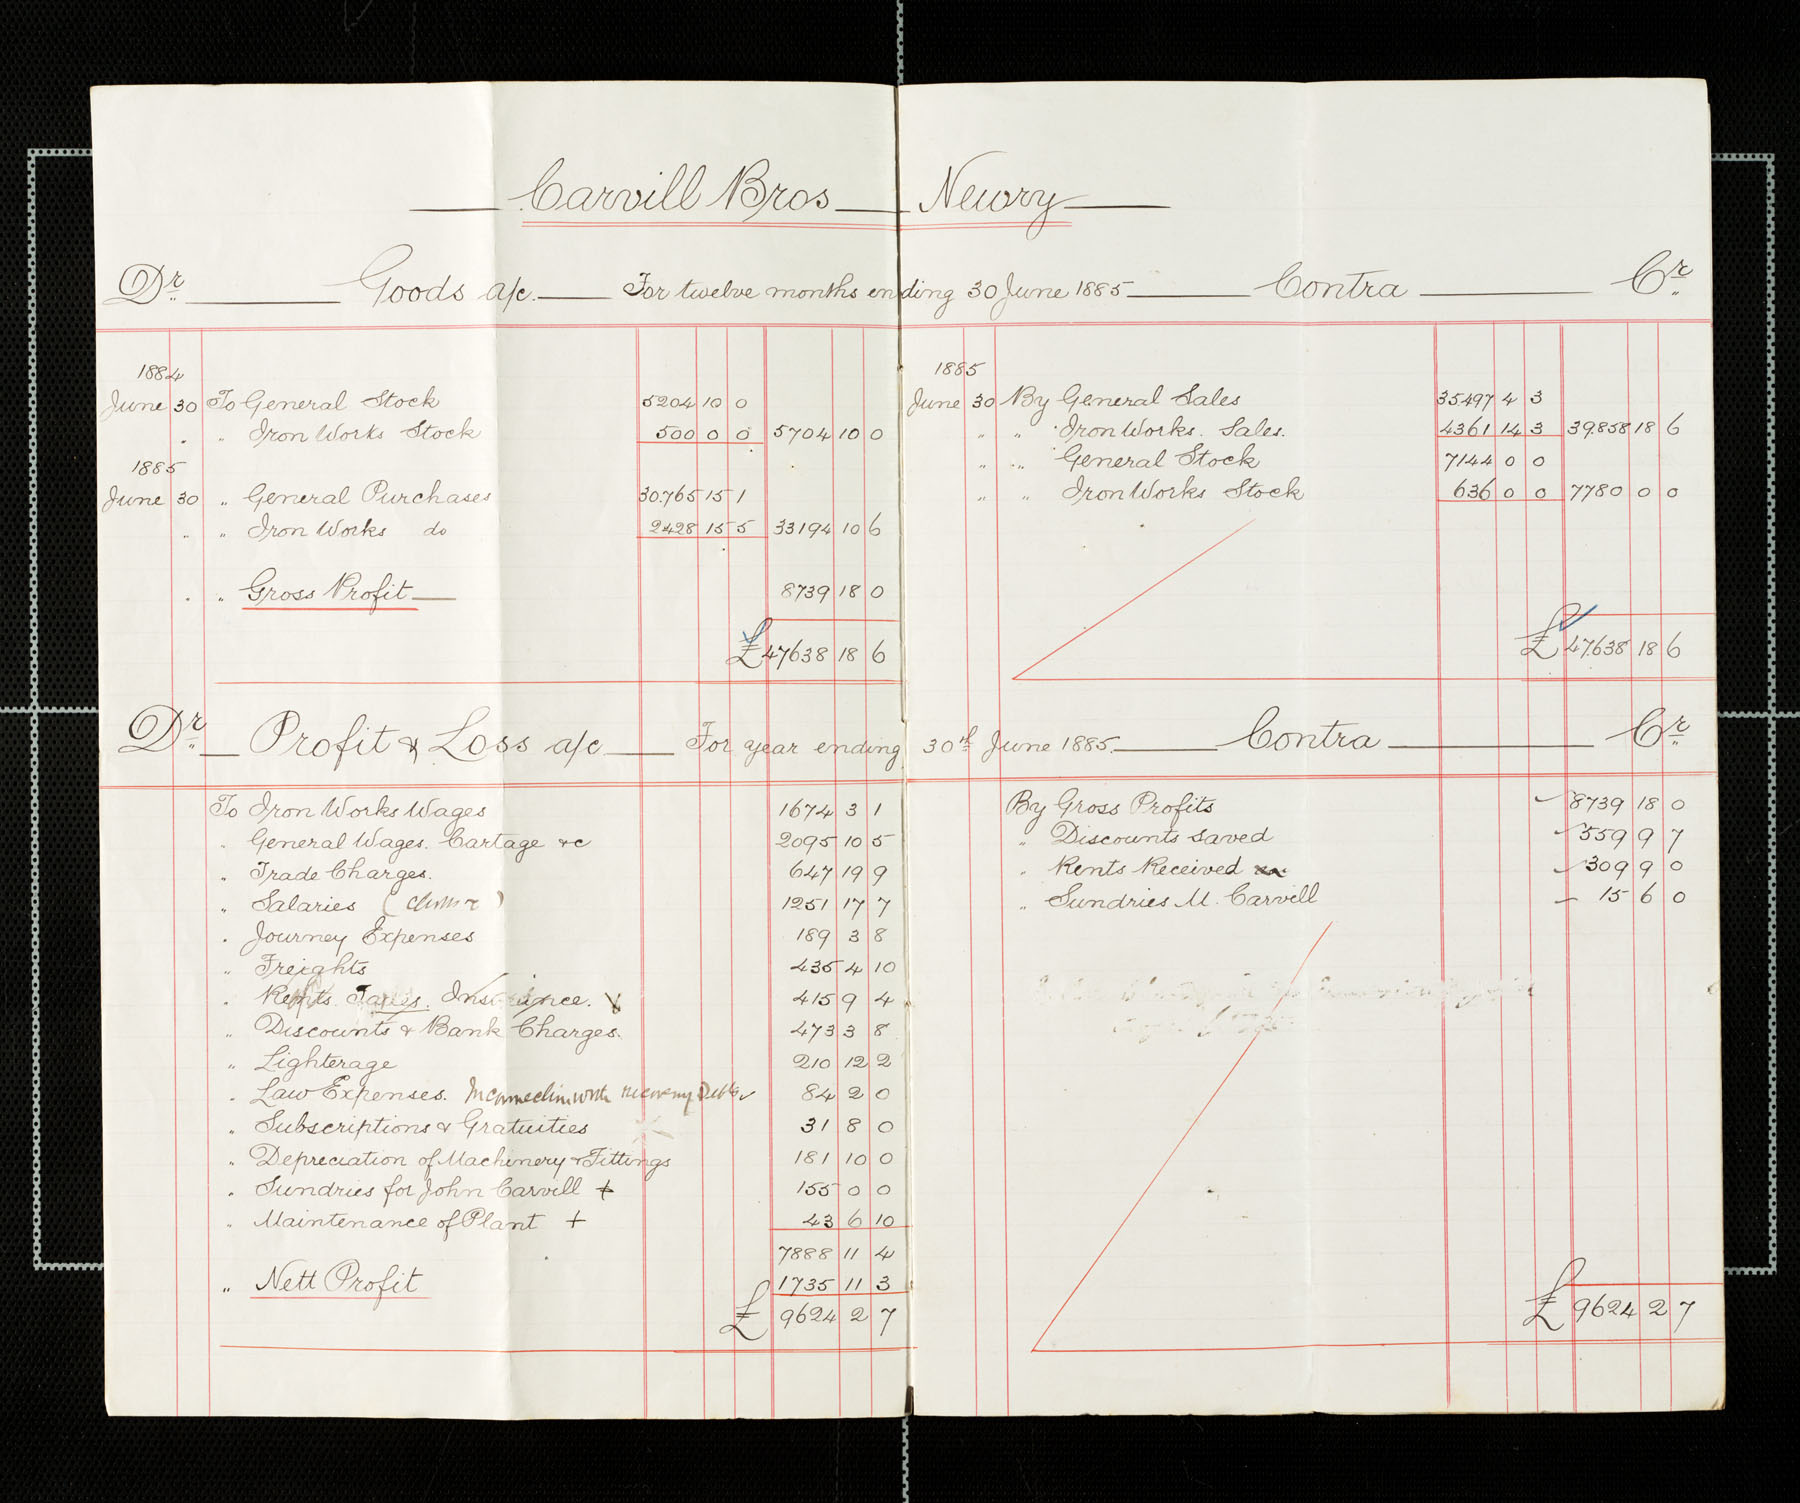 Carvill Bros Newry
Dr Goods a/c. For twelve months ending 30 June 1885 Contra Cr
1884
June 30 To General Stock 5204 10 0
" " Iron Works Stock 500 0 0 5704 10 0
1885
June 30 " General Purchases 30.765 15 1
" " Iron Works do 2428 15 5 33194 10 6
" " Gross Profit 8739 18 0
£ 47638 18 6
1885
June 30 By General Sales 35497 4 3
" " Iron Works. Sales. 4361 14 3 39.858 18 6
" " General Stock 7144 0 0
" " Iron Works Stock 636 0 0 7780 0 0
£ 47.638 18 6
Dr Profit & Loss a/c For year ending 30th June 1885. Contra Cr
To Iron Works Wages 1674 3 1
" General Wages. Cartage &c 2095 10 5
" Trade Charges. 647 19 9
" Salaries 1251 17 7
" Journey Expenses 189 3 8
" Freights 435 4 10
" Rents. Taxes. Insurance. 415 9 4
" Discounts & Bank Charges. 473 3 8
" Lighterage 210 12 2
" Law Expenses. In connection with recovery Debts 84 2 0
" Subscriptions & Gratuities 31 8 0
" Depreciation of Machinery & Fittings 181 10 0
" Sundries for John Carvill + 155 0 0
" Maintenance of Plant + 43 6 10
7888 11 4
" Nett Profit 1735 11 3
£ 9624 2 7
By Gross Profits 8739 18 0
" Discounts saved 559 9 7
" Rents Received 309 9 0
" Sundries M. Carvill 15 6 0
£ 9624 2 7